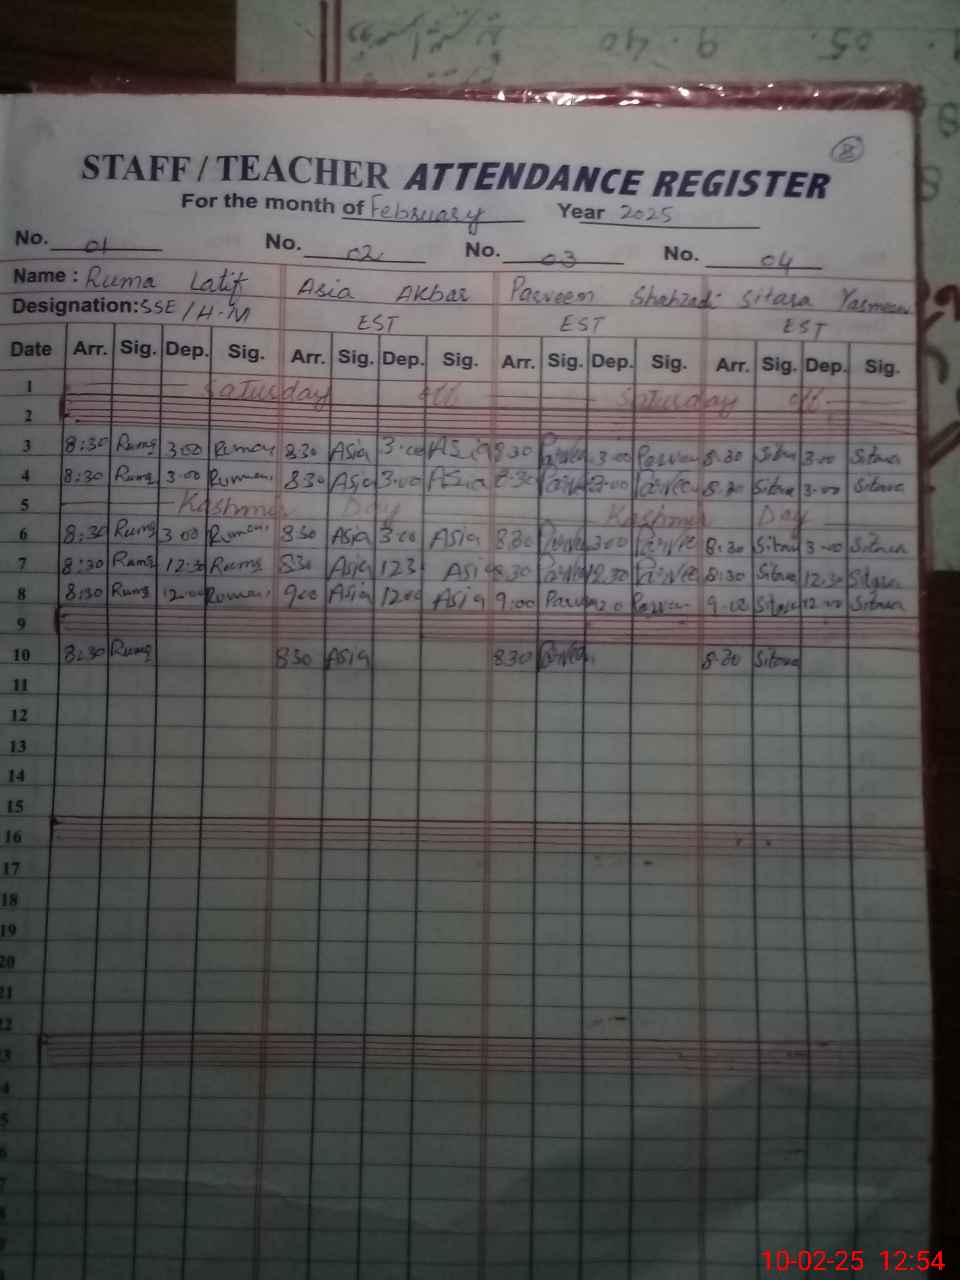 05. 9.40
8
STAFF / TEACHER ATTENDANCE REGISTER
For the month of February Year 2025
No. 01 No. 02 No. 03 No. 04
Name : Ruma Latif Asia Akbar Parveen Shahzadi Sitara Yasmeen
Designation: SSE/H.M EST EST EST
Date Arr. Sig. Dep. Sig. Arr. Sig. Dep. Sig. Arr. Sig. Dep. Sig. Arr. Sig. Dep. Sig.
1 Saturday off Saturday off
2
3 8:30 Ruma 3.00 8.30 Asia 3.00 Asia 8.30 3.00 8.30 3.00 Sitara
4 8:30 Ruma 3.00 8.30 Asia 3.00 Asia 8.30 3.00 8.30 Sitara 3.00 Sitara
5 Kashmir Day Kashmir Day
6 8:30 Ruma 3.00 8.30 Asia 3.00 Asia 8.30 3.00 8.30 Sitara 3.00 Sitara
7 8:30 Ruma 12:30 Ruma 8.30 Asia 123 Asia 8.30 12.30 8:30 Sitara 12.30 Sitara
8 8:30 Ruma 12:00 9.00 Asia 12.00 Asia 9:00 9.00 Sitara 12.00 Sitara
9
10 8:30 Ruma 8.30 Asia 8.30 8.30 Sitara
11
12
13
14
15
16
17
18
19
20
21
22
3
4
5
6
7
8
10-02-25 12:54